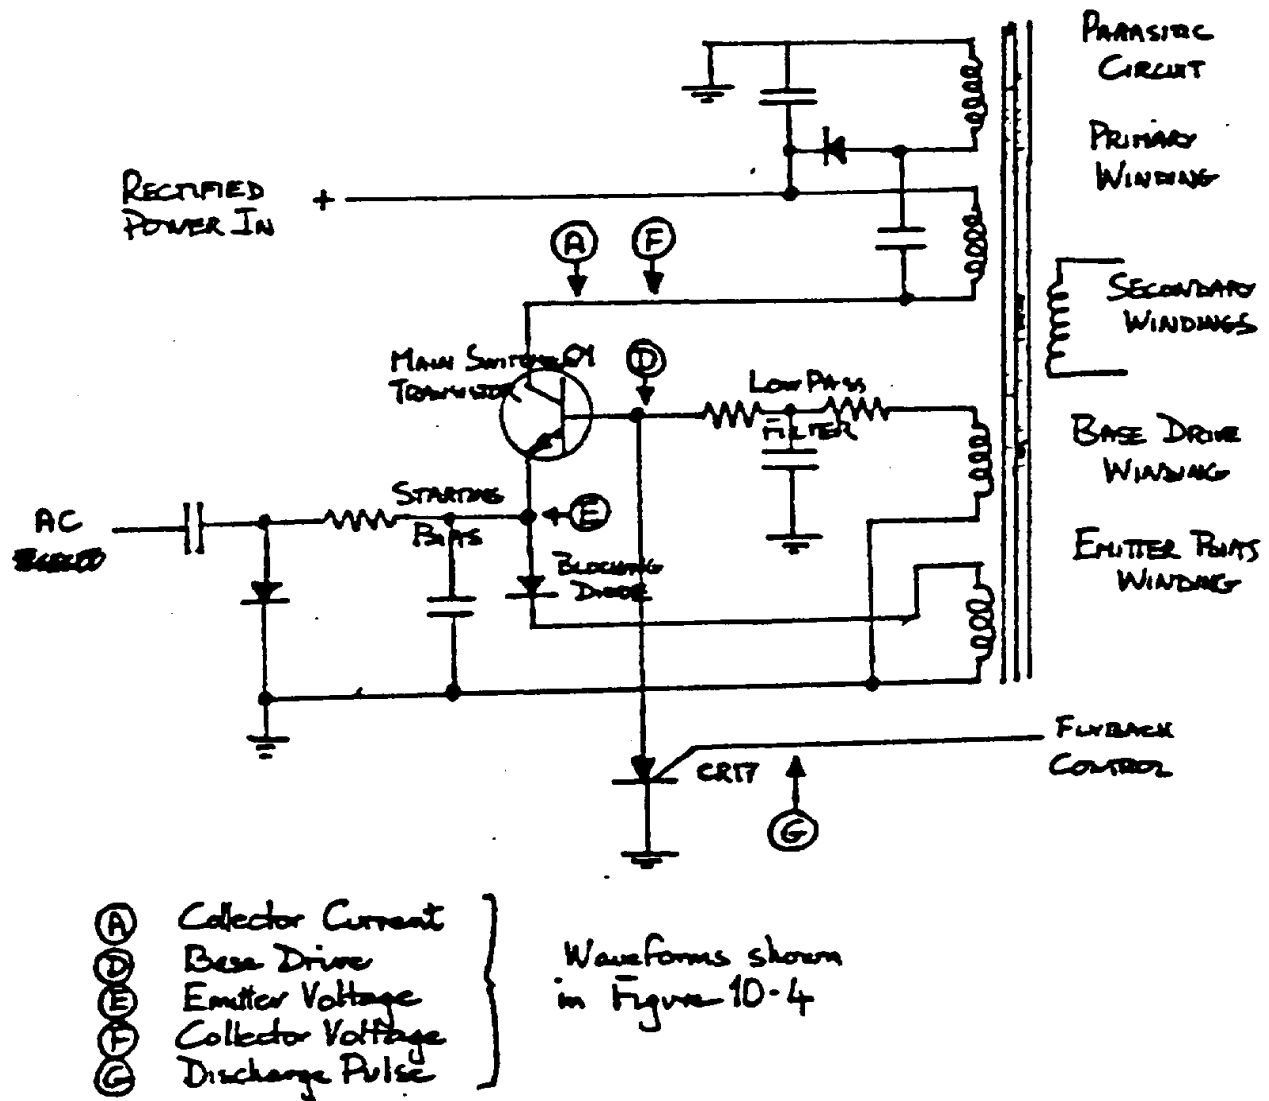 PARASITIC
CIRCUIT
PRIMARY
WINDING
RECTIFIED
POWER IN
+
A
F
SECONDARY
WINDINGS
MAIN SWITCHER
TRANSISTOR
D
LOW PASS
FILTER
BASE DRIVE
WINDING
STARTING
BIAS
E
AC
BLOCKING
DIODE
EMITTER BIAS
WINDING
FLYBACK
CONTROL
CR17
G
A Collector Current
D Base Drive
E Emitter Voltage
F Collector Voltage
G Discharge Pulse
Waveforms shown
in Figure 10-4